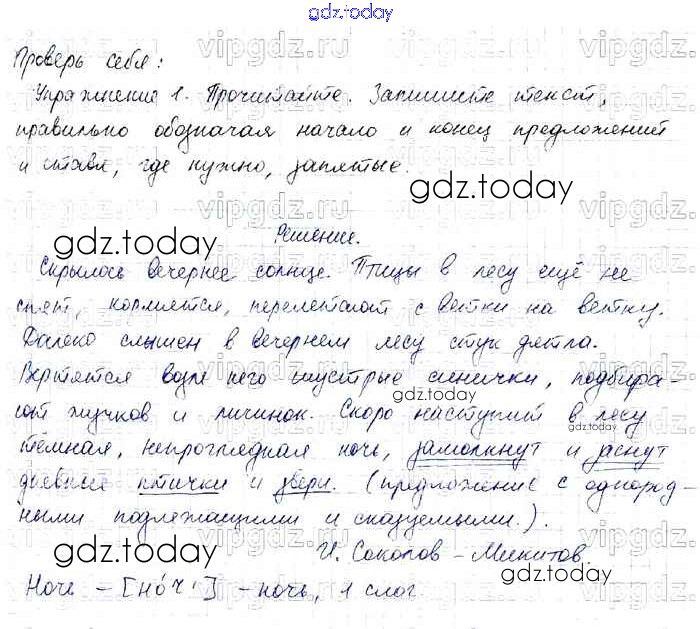 gdz.today
Проверь себя:
Упражнение 1. Прочитайте. Запишите текст,
правильно обозначая начало и конец предложений
и ставя, где нужно, запятые.
gdz.today
gdz.today
Решение.
Скрылось вечернее солнце. Птицы в лесу ещё не
спят, кормятся, перелетают с ветки на ветку.
Далеко слышен в вечернем лесу стук дятла.
Вертятся возле него шустрые синички, подбира-
ют жучков и личинок. Скоро наступит в лесу
тёмная, непроглядная ночь, замолкнут и заснут
дневные птички и звери. (предложение с однород-
ными подлежащими и сказуемыми.).
И. Соколов-Микитов.
gdz.today
gdz.today
Ночь – [но́ч'] – ночь, 1 слог.
vipgdz.ru